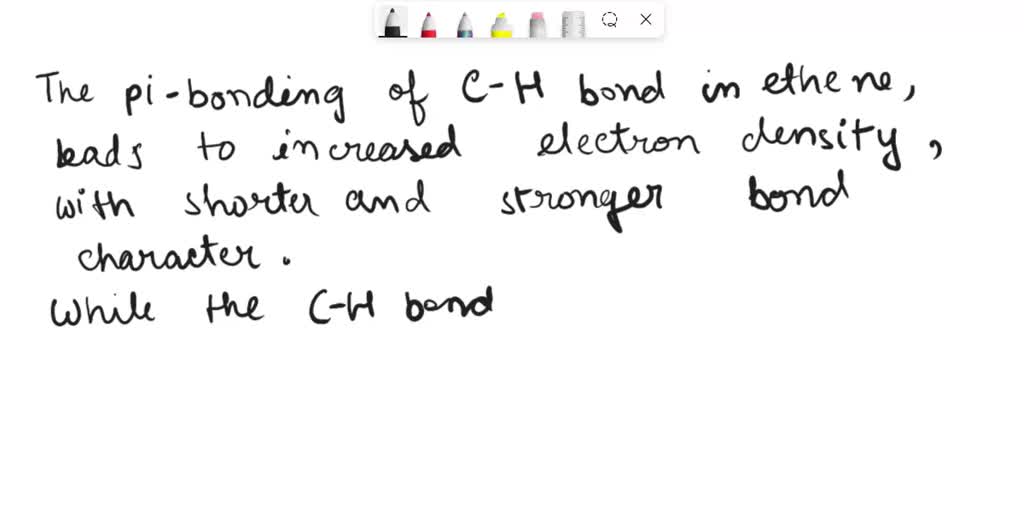 The pi-bonding of C-H bond in ethene,
leads to increased electron density,
with shorter and stronger bond
character.
While the C-H bond